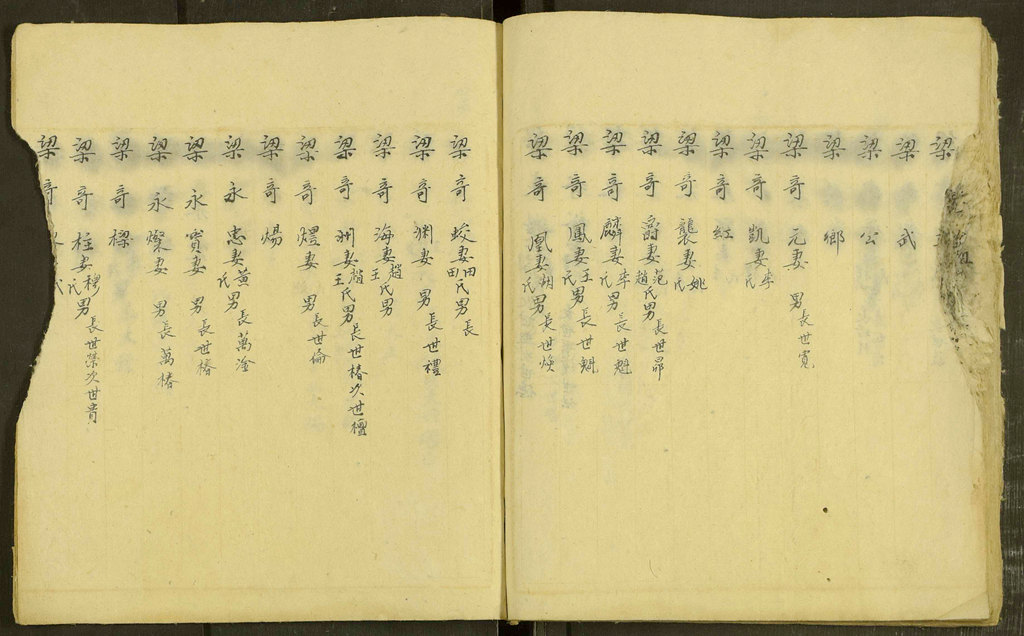 梁
梁武
梁公
梁鄉
梁奇元妻 男長世寬
梁奇凱妻李氏
梁奇紅
梁奇襲妻姚氏
梁奇爵妻范趙氏男長世昴
梁奇麟妻李氏男長世魁
梁奇鳳妻王氏男長世魁
梁奇凰妻胡氏男長世煥
梁奇蛟妻田田氏男長
梁奇渊妻 男長世禮
梁奇海妻趙王氏男
梁奇洲妻趙王氏男長世椿次世檀
梁奇熤妻 男長世倫
梁奇煬
梁永忠妻黃氏男長萬淦
梁永寳妻 男長世椿
梁永燦妻 男長萬椿
梁奇樑
梁奇柱妻穆氏男長世榮次世貴
梁奇